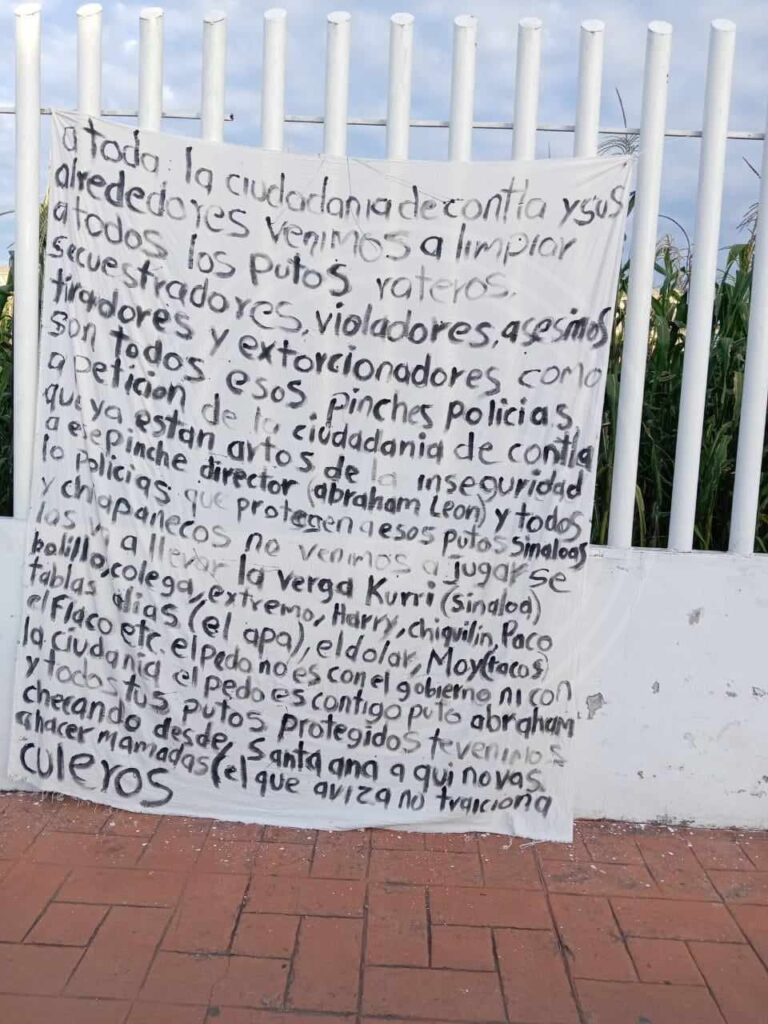 a toda: la ciudadania de contla y sus
alrededores venimos a limpiar
a todos los putos rateros.
secuestradores, violadores, asesinos
tiradores y extorcionadores como
son todos esos pinches policias
a peticion de la ciudadania de contla
que ya estan artos de la inseguridad
a ese pinche director (abraham Leon) y todos
lo policias que protegen a esos putos sinaloas
y chiapanecos no venimos a jugar se
las va a llevar la verga Kurri (sinaloa)
bolillo, colega, extremo, Harry, chiquilin, Paco
tablas alias (el apa), el dolar, Moy (tacos)
el Flaco etc. el pedo no es con el gobierno ni con
la ciudania el pedo es contigo puto abraham
y todos tus putos protegidos te venimos
checando desde, santa ana a qui no vas
a hacer mamadas (el que aviza no traiciona
culeros